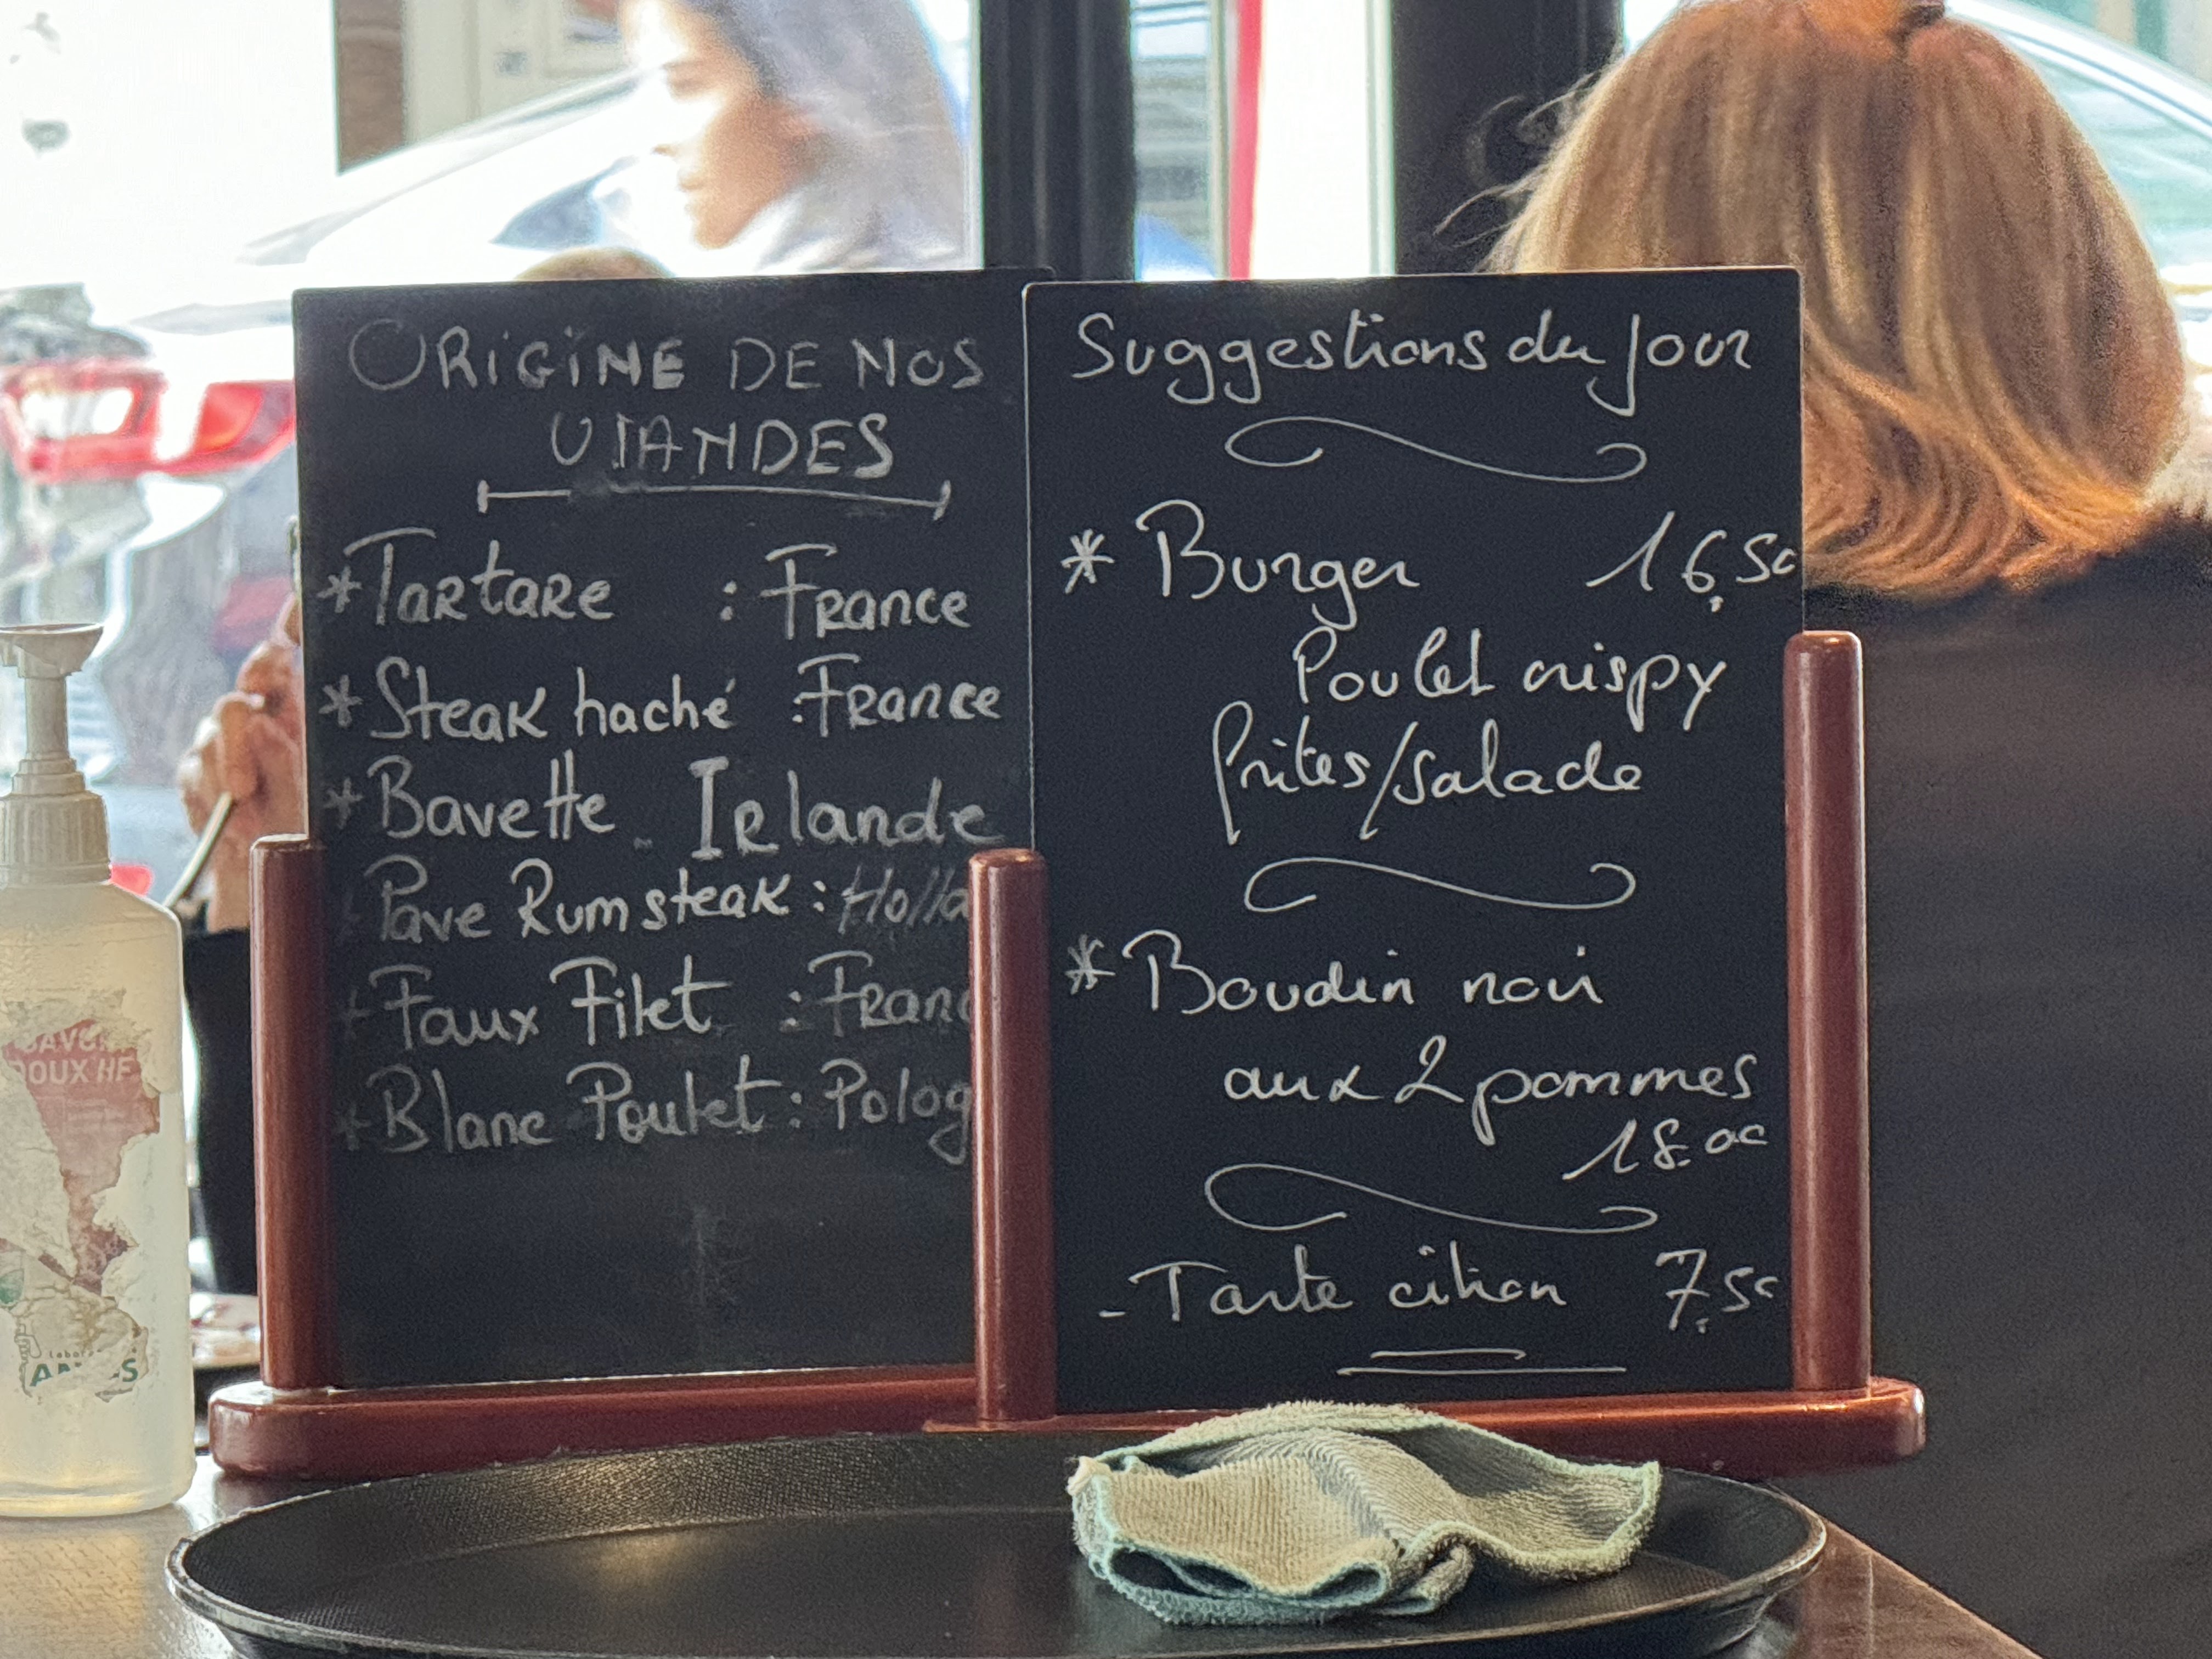 ORIGINE DE NOS
VIANDES
* Tartare : France
* Steak haché : France
* Bavette - Irlande
* Pave Rumsteak : Holla
* Faux Filet : Franc
* Blanc Poulet : Polog
Suggestions du jour
* Burger 16,50
Poulet crispy
frites/salade
* Boudin noir
aux 2 pommes
18.00
- Tarte citron 7,50
DOUX HF